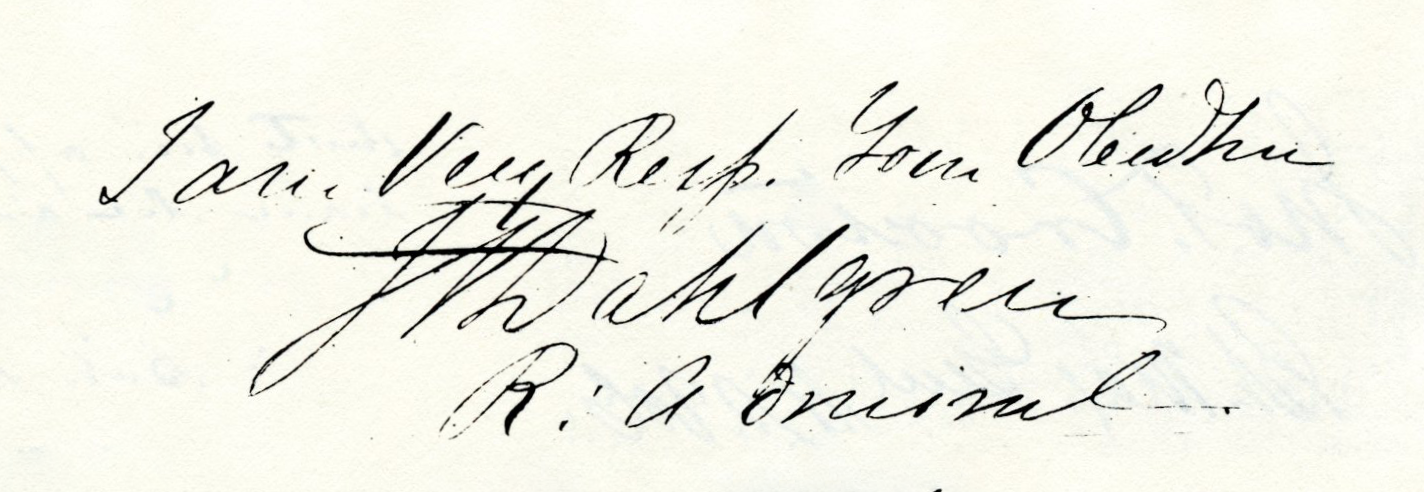 I am Very Resp. Your
JADahlgren
R: Admiral